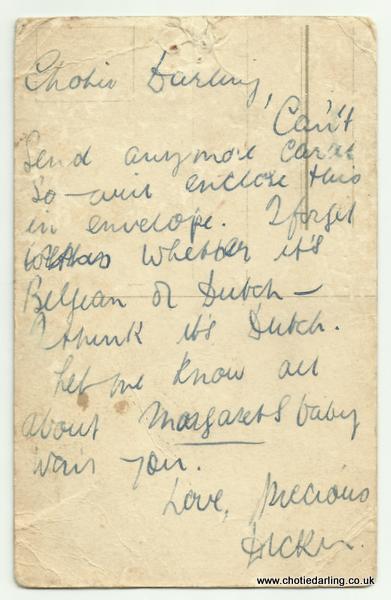 Chotie Darling,
Can't
Send anymore cards
so - will enclose this
in envelope. I forget
whether it's
Belgian or Dutch -
I think it's Dutch.
Let me know all
about Margaret's baby
won't you.
Love, Precious
Dickie.
www.chotiedarling.co.uk